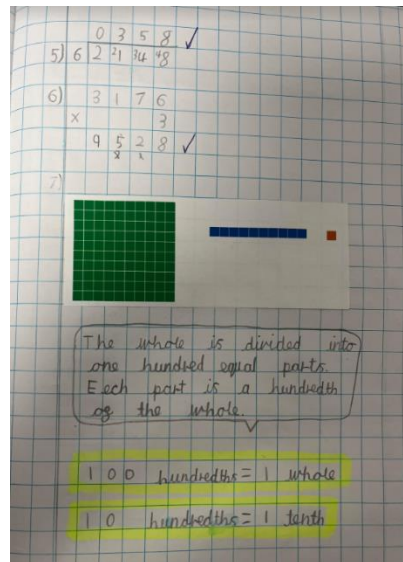 0 3 5 8
5) 6 2 ²1 ³4 ⁴8
6) 3 1 7 6
x 3
9 5 2 8
2 1
7)
The whole is divided into
one hundred equal parts.
Each part is a hundredth
of the whole.
1 0 0 hundredths = 1 whole
1 0 hundredths = 1 tenth